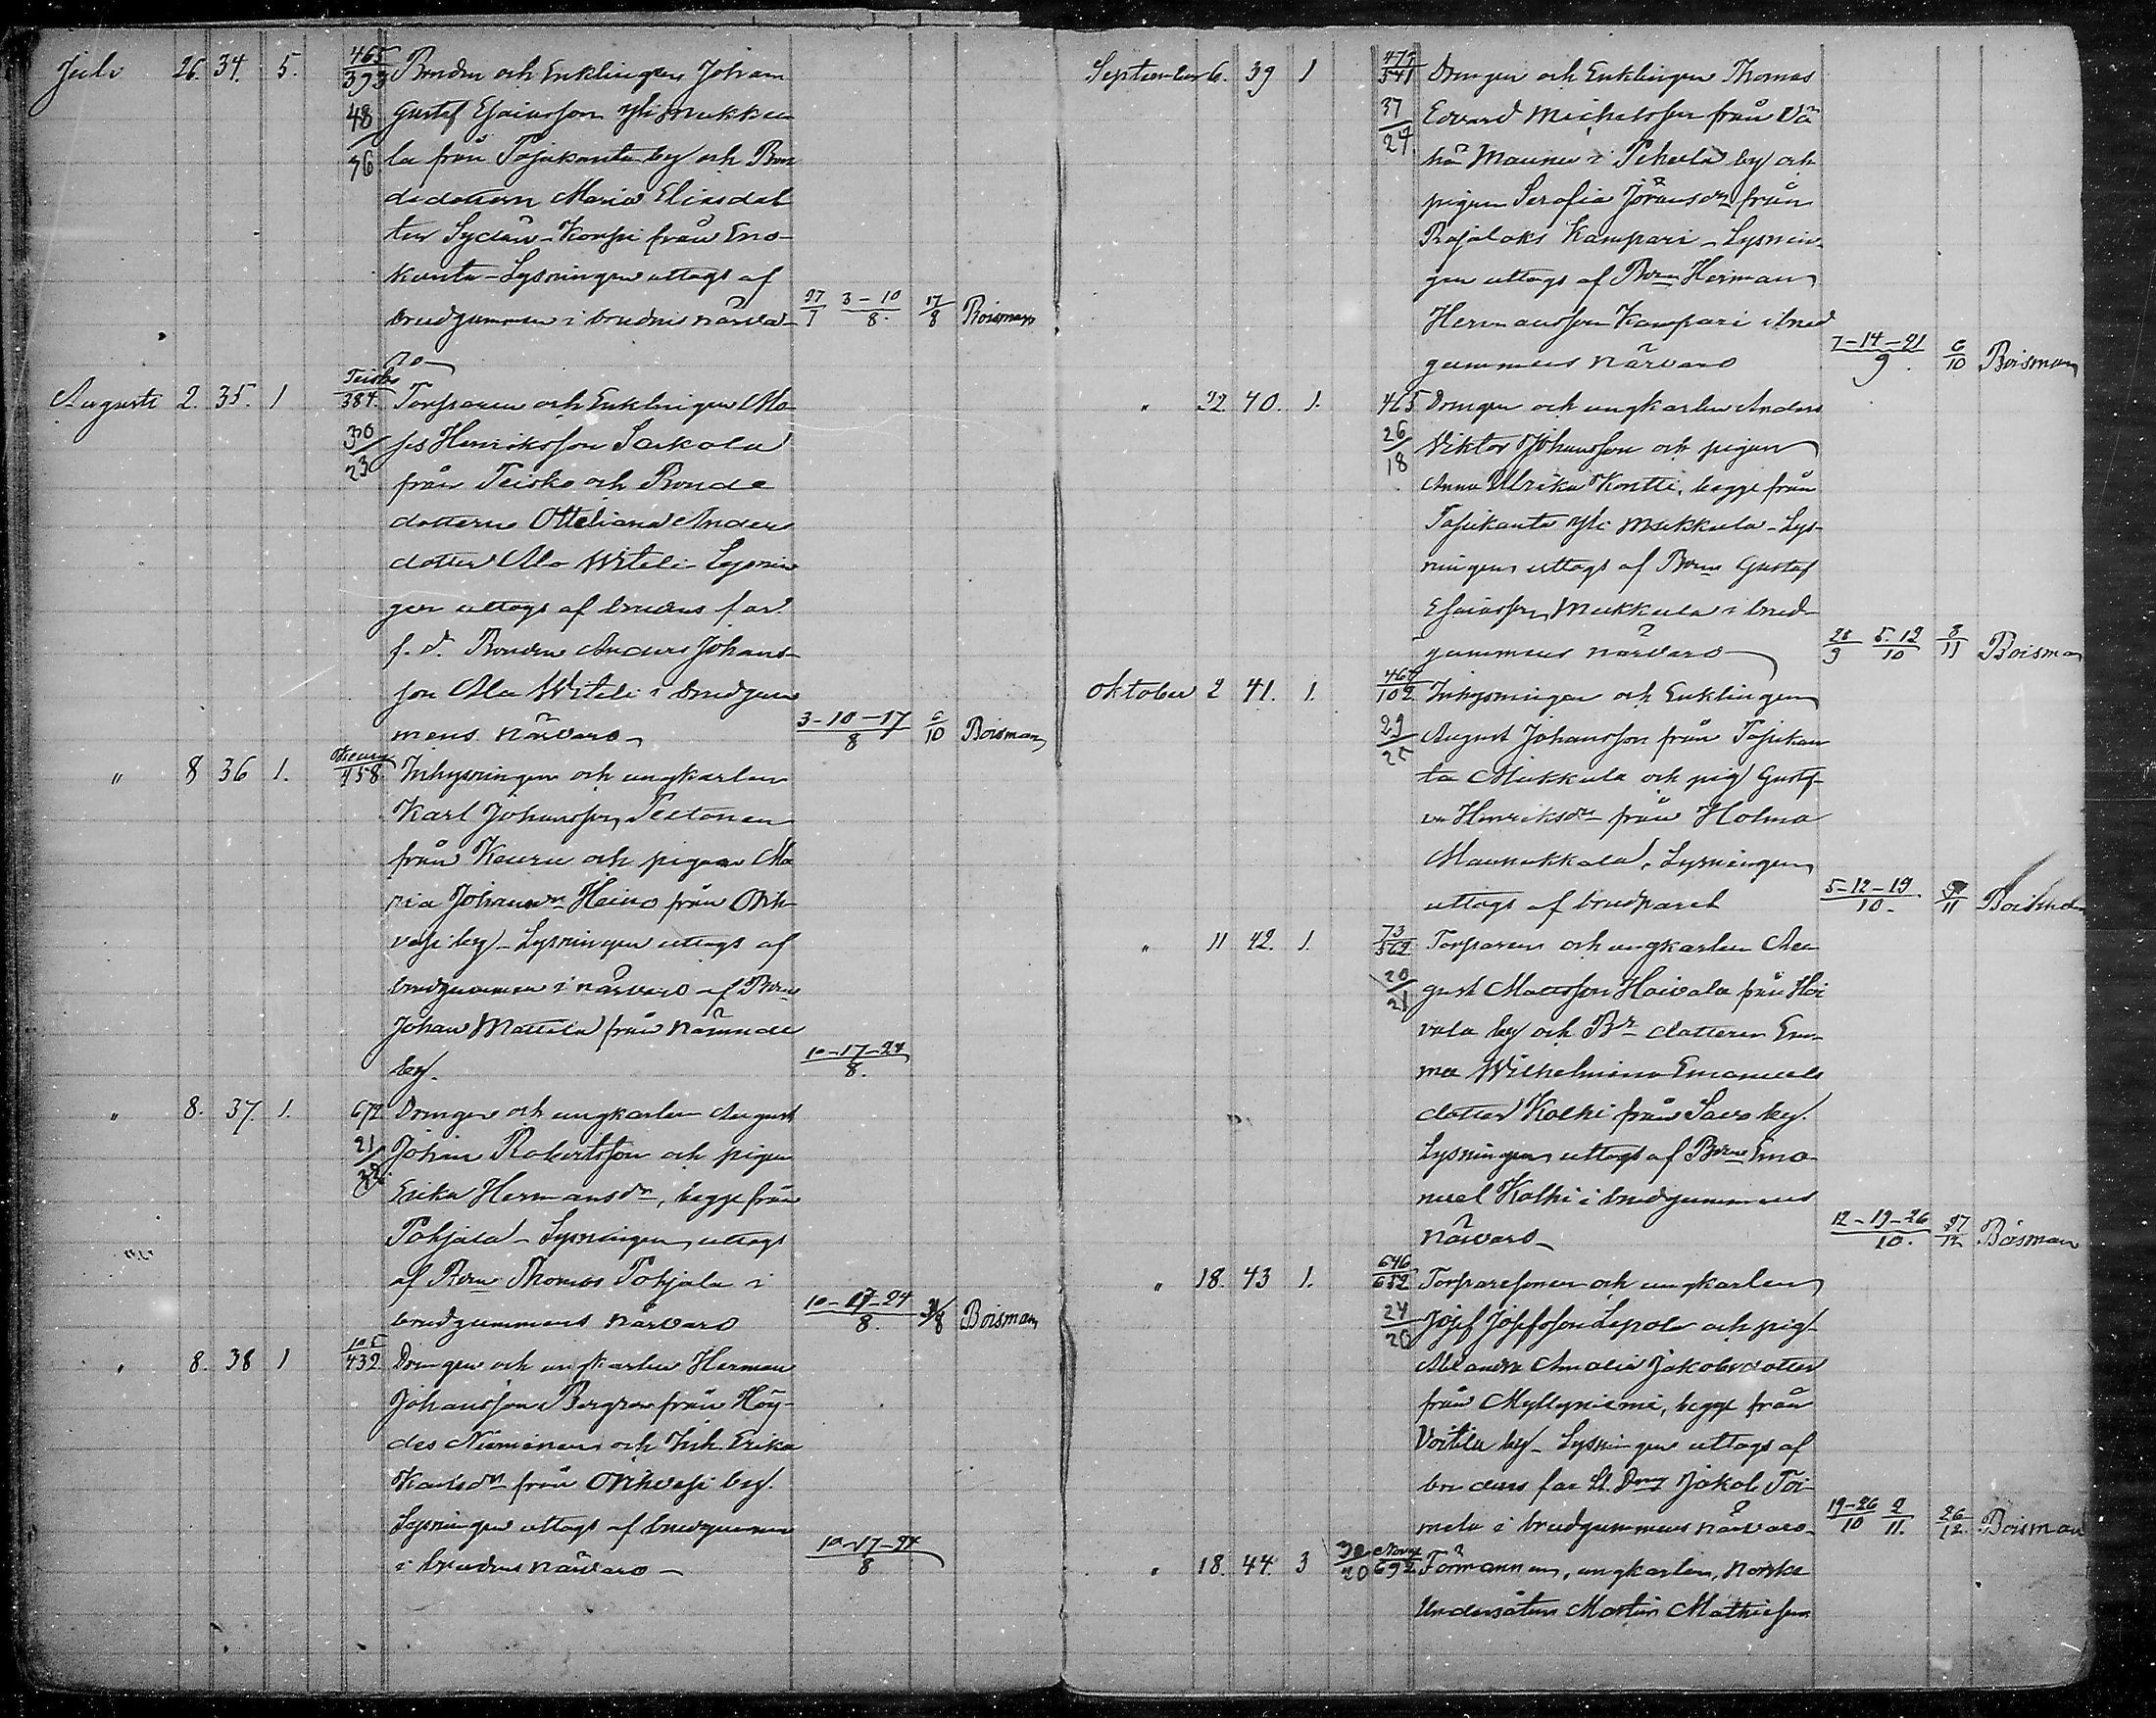 Juli 26. 34. 5. 465/393 Bonden och Enklingen Johan
48/36 Gustaf Esaiasson Yli Mukku
la från Tasikanta by och Bon
dedottern Maria Eliasdot
ter Sydän-Korpi från Eno-
kunta - Lysningen uttogs af
brudgummen i brudens närva- 27/7 3-10/8. 17/8 Boisman
ro
Augusti 2. 35. 1 Teisko/384. Torparen och Enklingen Ma
30/23 ses Henriksson Sarkola
från Teisko och Bonde
dottern Otteliana Anders
dotter Ala Witeli - Lysnin
gen uttogs af brudens far
f. d. Bonden Anders Johans-
son Ala Witeli i brudgum
mens närvaro - 3-10-17/8 6/10 Boisman
" 8 36 1. 458. Inhysningen och ungkarlen
Karl Johansson Teetonen
från Keuru och pigan Ma
ria Johansdr Heino från Orih-
vesi by - Lysningen uttogs af
brudgummen i närvaro af Bon
Johan Mattila från nämnde
by. 10-17-24/8.
" 8. 37. 1. 672 Drengen och ungkarlen August
21/22 Johan Robertsson och pigan
Erika Hermansdr, begge från
Pohjala - Lysningen uttogs
af Bon Thomas Pohjala i
brudgummens närvaro 10-17-24/8. 31/8 Boisman
" 8. 38 1 105/432 Drengen och ungkarlen Herman
Johansson Bergroos från Höy-
des Nieminen och Inh. Erika
Karlsdr från Orihvesi by.
Lysningen uttogs af brudgummen
i brudens närvaro - 10-17-24/8
September 6. 39 1 475/541 Drengen och Enklingen Thomas
37/24 Edvard Michelsson från Vä
hä Maunu i Pehula by och
pigan Serafia Jöransdr från
Rajalaks Kampari - Lysnin-
gen uttogs af Bon Herman
Hermansson Kampari i brud
gummens närvaro 7-14-21/9. 6/10 Boisman
" 22. 40. 1. 465 Drengen och ungkarlen Anders
26/18 Viktor Johansson och pigan
Anna Ulrika Kontti, begge från
Tasikanta Yli Mukkula - Lys-
ningen uttogs af Bon Gustaf
Esaiasson Mukkula i brud-
gummens närvaro 28/9 5-12/10 8/11 Boisman
Oktober 2 41. 1. 467/102 Inhysningen och Enklingen
29/25 August Johansson från Tasikan
ta Mukkula och pig Gusta
va Henriksdr från Holma
Maunukkala. Lysningen
uttogs af brudparet 5-12-19/10. 9/11 Boisman
" 11 42. 1. 73/562 Torparen och ungkarlen Au
20/21 gust Mattsson Hoivala från Hoi
vala by och Br dottern Em-
ma Wilhelmina Emanuels
dotter Kolhi från Savo by.
Lysningen uttogs af Bon Ema-
nuel Kolhi i brudgummens
närvaro - 12-19-26/10. 27/12 Boisman
" 18. 43 1. 646/652 Torparesonen och ungkarlen
24/20 Josef Josefsson Lepola och pig
Alexandra Amalia Jakobsdotter
från Myllyniemi, begge från
Voitila by - Lysningen uttogs af
brudens far Jakob Toi-
mela i brudgummens närvaro - 19-26/10 2/11. 26/12. Boisman
" 18. 44. 3 32/20 Norge/692 Förmannen, ungkarlen, Norske
Undersåten Martin Mathiesen